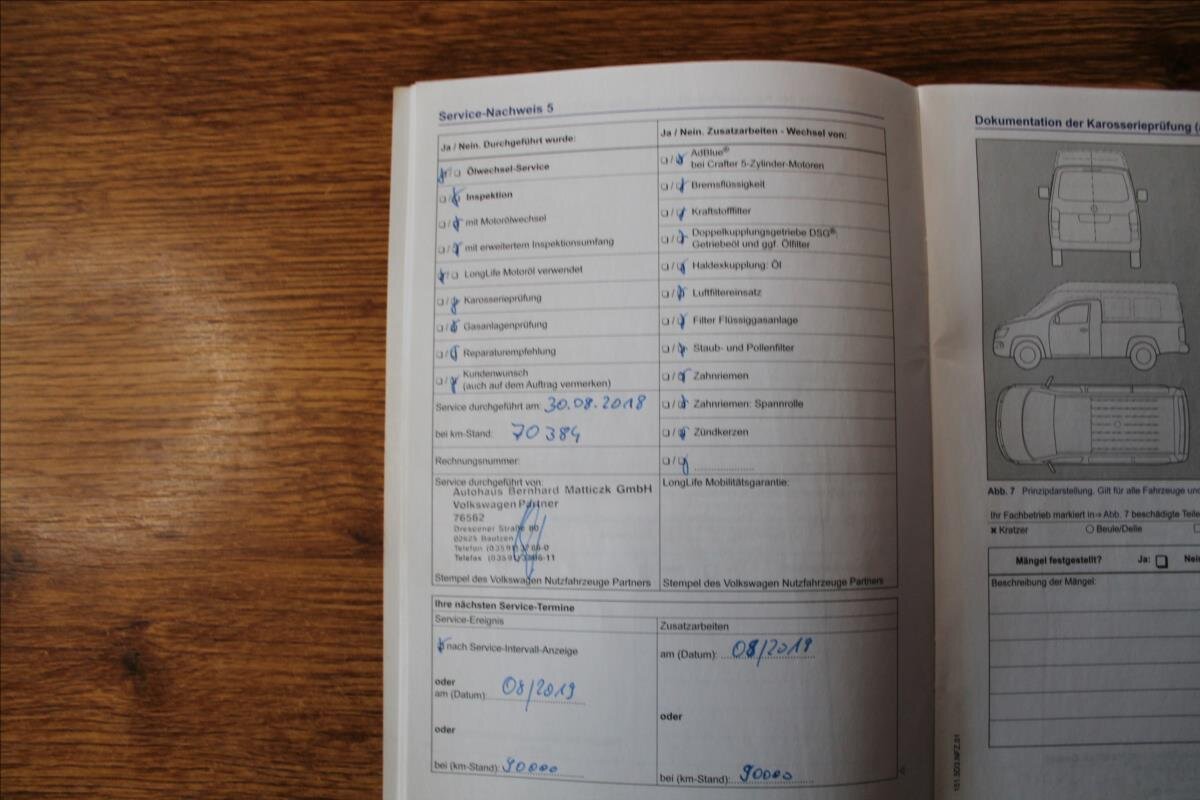 Service-Nachweis 5
Ja / Nein. Durchgeführt wurde:
Ölwechsel-Service
Inspektion
mit Motorölwechsel
mit erweitertem Inspektionsumfang
LongLife Motoröl verwendet
Karosserieprüfung
Gasanlagenprüfung
Reparaturempfehlung
Kundenwunsch
(auch auf dem Auftrag vermerken)
Service durchgeführt am: 30.08.2018
bei km-Stand: 70384
Rechnungsnummer:
Service durchgeführt von:
Autohaus Bernhard Matticzk GmbH
Volkswagen Partner
76562
Dresdener Straße 80
02625 Bautzen
Telefon (03591)
Telefax (03591)
Stempel des Volkswagen Nutzfahrzeuge Partners
Ja / Nein. Zusatzarbeiten - Wechsel von:
AdBlue®
bei Crafter 5-Zylinder-Motoren
Bremsflüssigkeit
Kraftstofffilter
Doppelkupplungsgetriebe DSG®:
Getriebeöl und ggf. Ölfilter
Haldexkupplung: Öl
Luftfiltereinsatz
Filter Flüssiggasanlage
Staub- und Pollenfilter
Zahnriemen
Zahnriemen: Spannrolle
Zündkerzen
LongLife Mobilitätsgarantie:
Stempel des Volkswagen Nutzfahrzeuge Partners
Ihre nächsten Service-Termine
Service-Ereignis
nach Service-Intervall-Anzeige
oder
am (Datum): 08/2019
oder
bei (km-Stand): 90000
Zusatzarbeiten
am (Datum): 08/2019
oder
bei (km-Stand): 90000
Dokumentation der Karosserieprüfung (
Abb. 7 Prinzipdarstellung. Gilt für alle Fahrzeuge und
Ihr Fachbetrieb markiert in ⇒ Abb. 7 beschädigte Teile
Kratzer
Beule/Delle
Mängel festgestellt? Ja: Nein
Beschreibung der Mängel:
151.5D3.NFZ.01